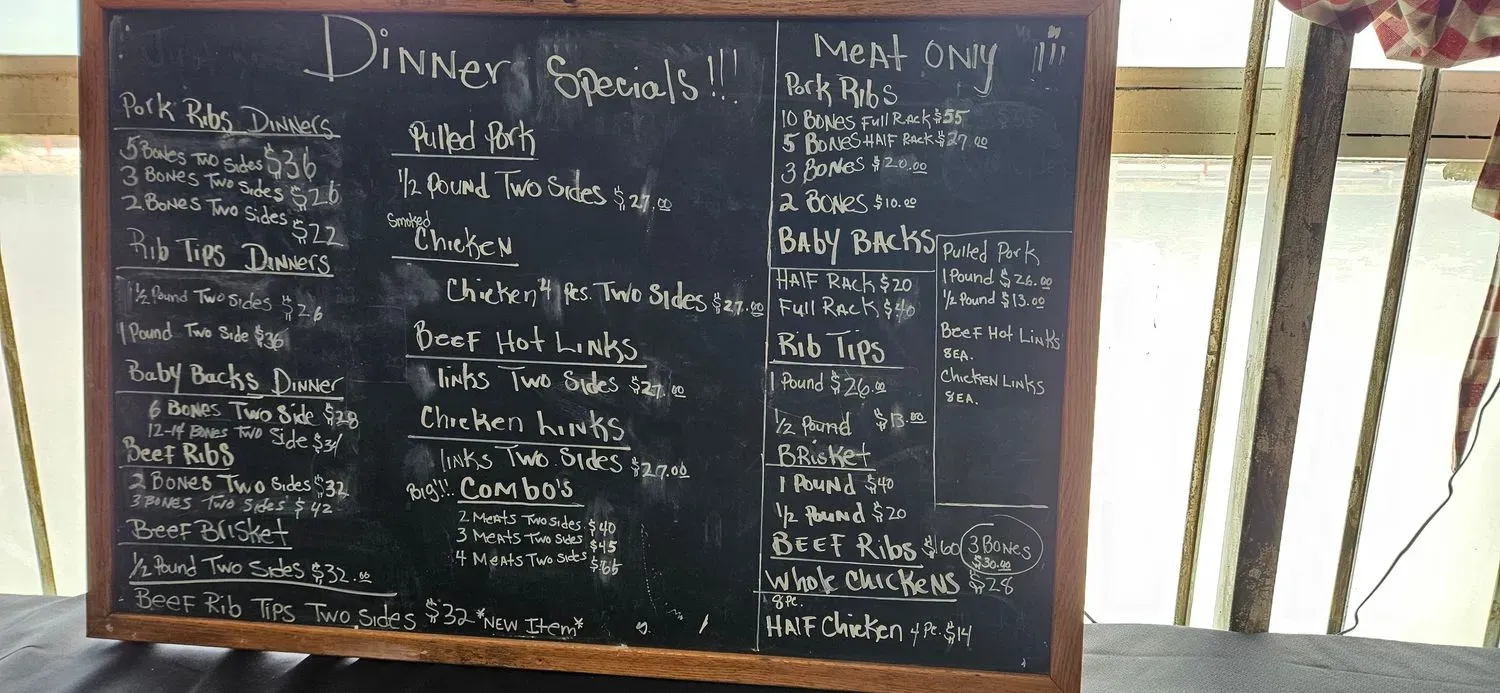 Dinner Specials!!!
Pork Ribs Dinners
5 Bones Two Sides $36
3 Bones Two Sides $26
2 Bones Two Sides $22
Rib Tips Dinners
1/2 Pound Two Sides $26
1 Pound Two Side $36
Baby Backs Dinner
6 Bones Two Side $28
12-14 Bones Two Side $31
Beef Ribs
2 Bones Two Sides $32
3 Bones Two Sides $42
Beef Brisket
1/2 Pound Two Sides $32.00
Beef Rib Tips Two Sides $32 *New Item*
Pulled Pork
1/2 Pound Two Sides $27.00
Smoked
Chicken
Chicken 4 Pcs. Two Sides $27.00
Beef Hot Links
links Two Sides $27.00
Chicken Links
links Two Sides $27.00
Big!!! Combo's
2 Meats Two Sides $40
3 Meats Two Sides $45
4 Meats Two Sides $65
Meat Only !!!
Pork Ribs
10 Bones Full Rack $55
5 Bones Half Rack $27.00
3 Bones $20.00
2 Bones $10.00
Baby Backs
Half Rack $20
Full Rack $40
Rib Tips
1 Pound $26.00
1/2 Pound $13.00
Brisket
1 Pound $40
1/2 Pound $20
Beef Ribs $160 3 Bones $30.00
Whole Chickens $28
8 Pc.
Half Chicken 4 Pc. $14
Pulled Pork
1 Pound $26.00
1/2 Pound $13.00
Beef Hot Links
8 EA.
Chicken Links
8 EA.